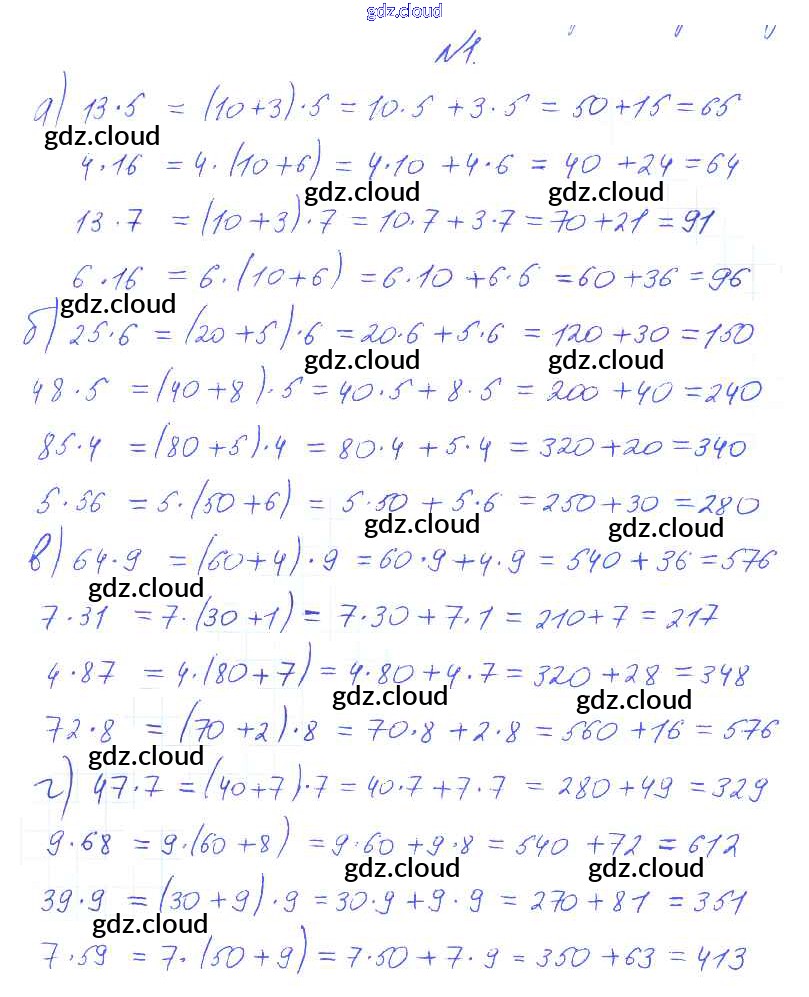 gdz.cloud
№1.
а) 13·5 = (10+3)·5 = 10·5 + 3·5 = 50+15 = 65
gdz.cloud
4·16 = 4·(10+6) = 4·10 + 4·6 = 40 + 24 = 64
gdz.cloud gdz.cloud
13·7 = (10+3)·7 = 10·7 + 3·7 = 70 + 21 = 91
6·16 = 6·(10+6) = 6·10 + 6·6 = 60 + 36 = 96
gdz.cloud
б) 25·6 = (20+5)·6 = 20·6 + 5·6 = 120 + 30 = 150
gdz.cloud gdz.cloud
48·5 = (40+8)·5 = 40·5 + 8·5 = 200 + 40 = 240
85·4 = (80+5)·4 = 80·4 + 5·4 = 320 + 20 = 340
5·56 = 5·(50+6) = 5·50 + 5·6 = 250 + 30 = 280
gdz.cloud gdz.cloud
в) 64·9 = (60+4)·9 = 60·9 + 4·9 = 540 + 36 = 576
gdz.cloud
7·31 = 7·(30+1) = 7·30 + 7·1 = 210 + 7 = 217
4·87 = 4·(80+7) = 4·80 + 4·7 = 320 + 28 = 348
gdz.cloud gdz.cloud
72·8 = (70+2)·8 = 70·8 + 2·8 = 560 + 16 = 576
gdz.cloud
г) 47·7 = (40+7)·7 = 40·7 + 7·7 = 280 + 49 = 329
9·68 = 9·(60+8) = 9·60 + 9·8 = 540 + 72 = 612
gdz.cloud gdz.cloud
39·9 = (30+9)·9 = 30·9 + 9·9 = 270 + 81 = 351
gdz.cloud
7·59 = 7·(50+9) = 7·50 + 7·9 = 350 + 63 = 413